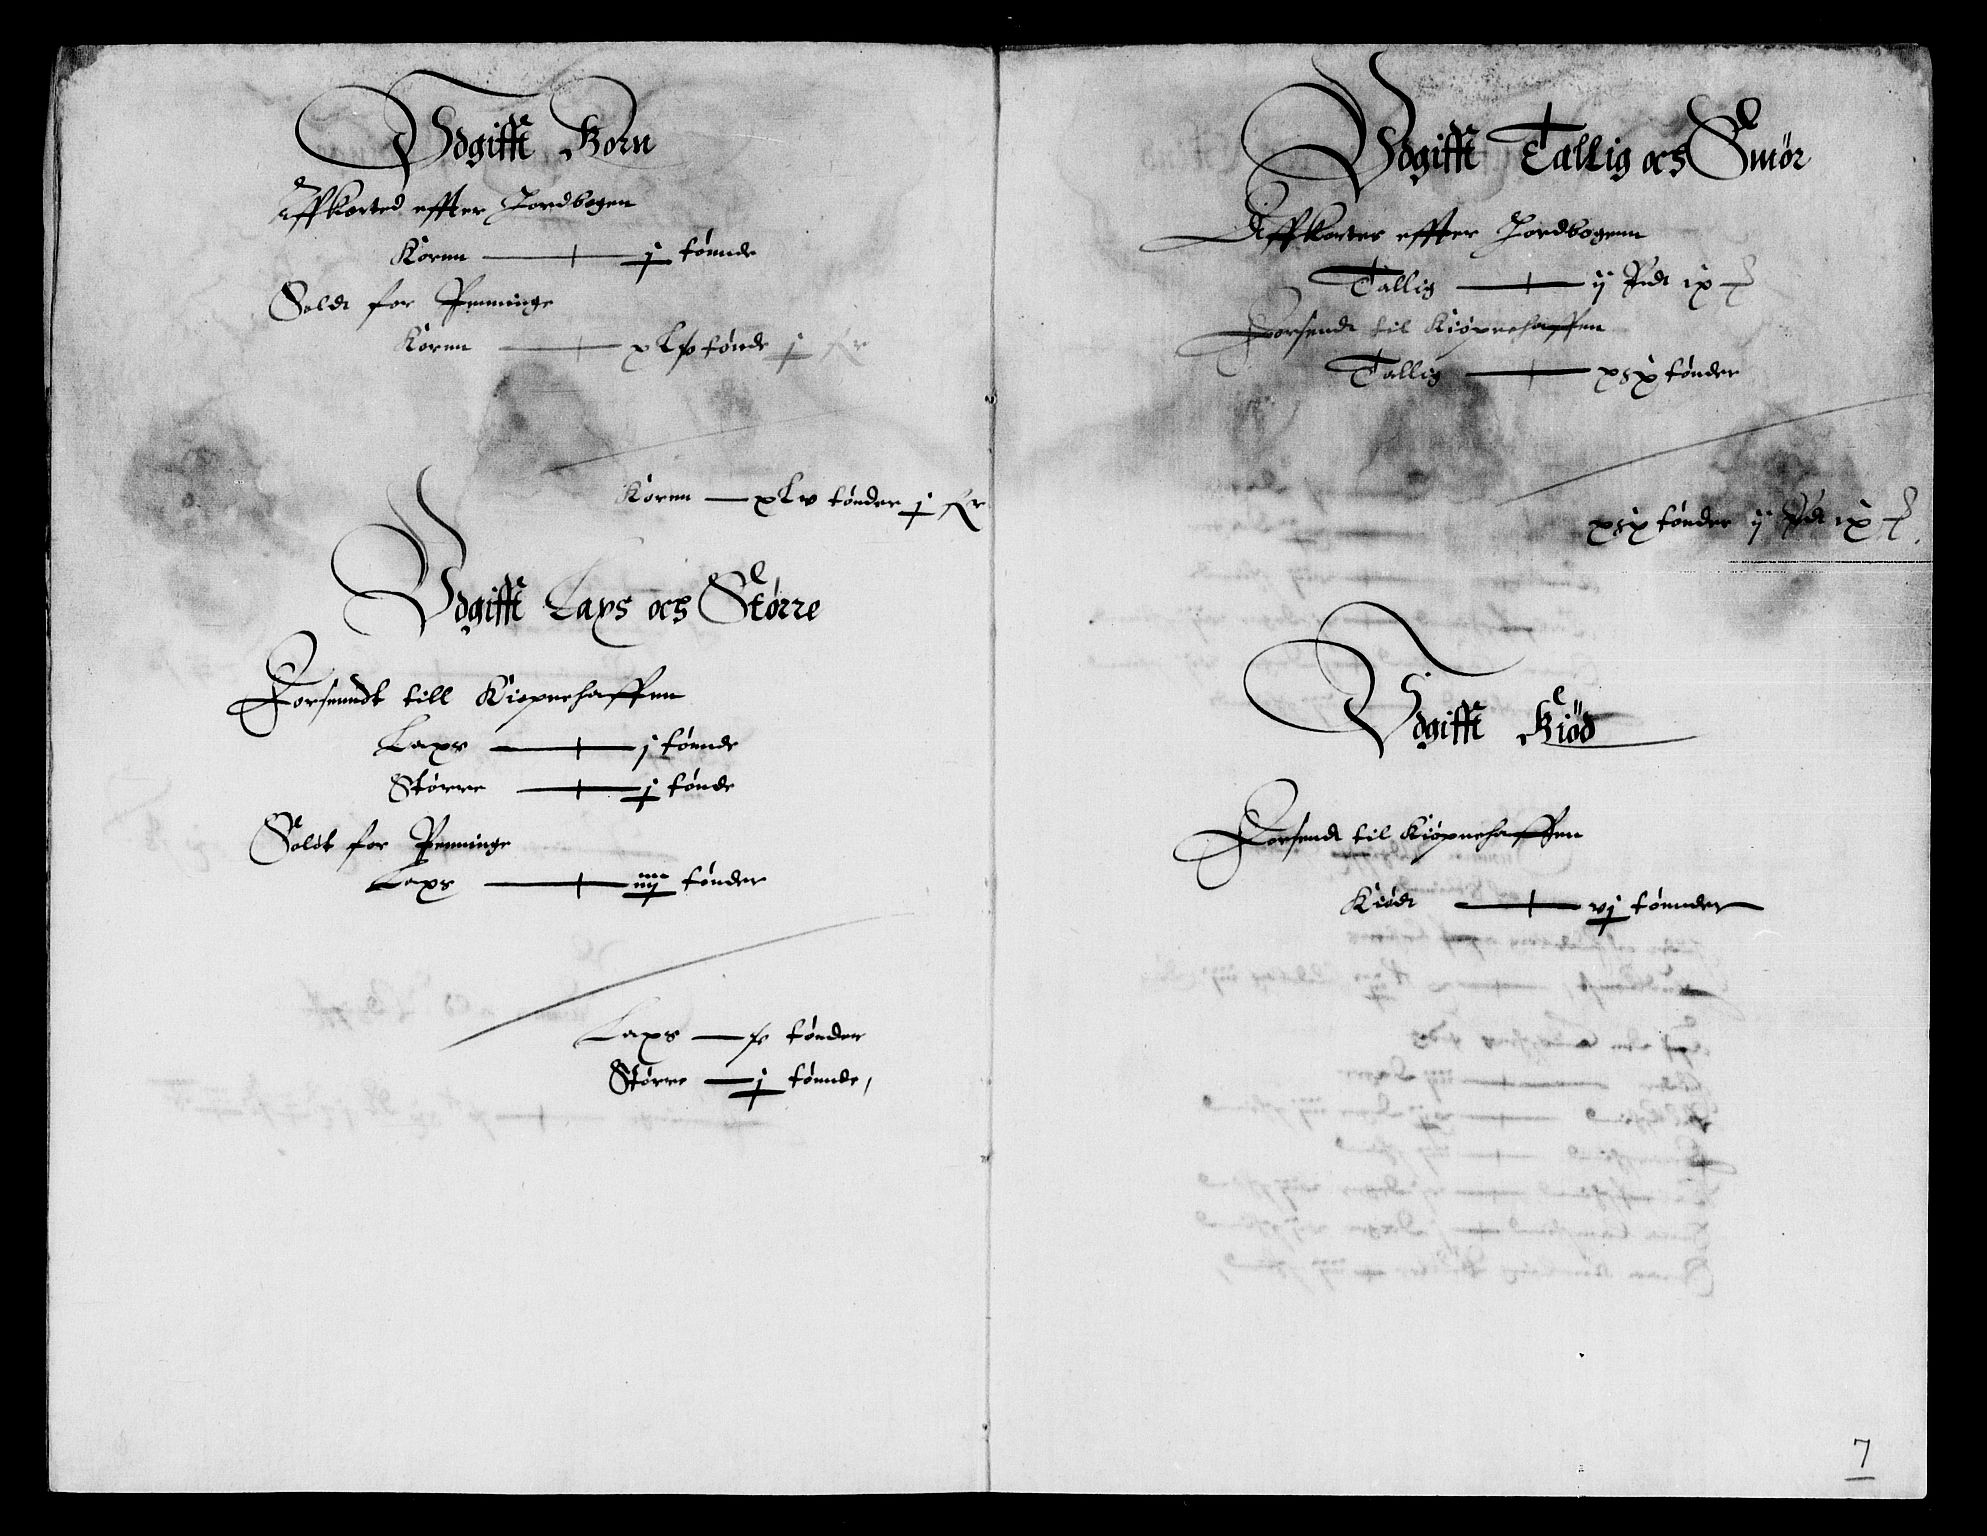 Vdgifft Korn
Affkorted effter Jordbogen
Kornn — j tønnde
Soldt for Penninge
Kornn — xLiiij tønde j
Kornn — xLv tønder j
Vdgifft Laxs och Større
Forsenndt till Kiøpnehaffen
Laxs — j tønnde
Større — j tønde
Soldt for Penninge
Laxs — iiij tønder
Laxs — v tønder
Større — j tønnde,
Vdgifft Tallig och Smør
Affkortes effter Jordbogenn
Tallig — ij Pdt ix
Forsendt til Kiøpnehaffen
Tallig — xxix tønder
xxix tønder ij Pdt ix
Vdgifft Kiød
Forsendt til Kiøpnehaffen
Kiødt — vj tønnder
7